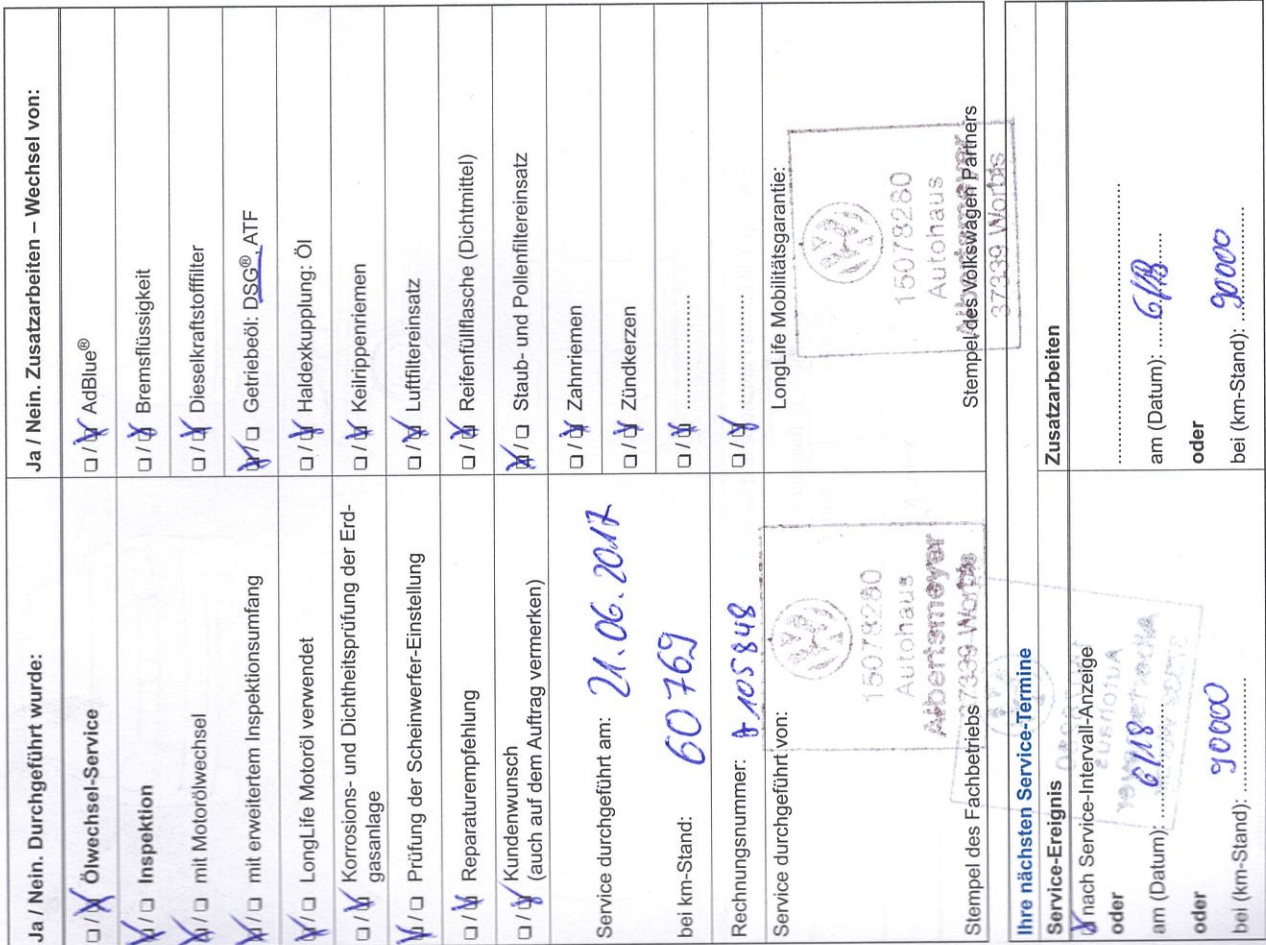 Ja / Nein. Durchgeführt wurde:
☐ / ☒ Ölwechsel-Service
☒ / ☐ Inspektion
☒ / ☐ mit Motorölwechsel
☒ / ☐ mit erweitertem Inspektionsumfang
☒ / ☐ LongLife Motoröl verwendet
☐ / ☒ Korrosions- und Dichtheitsprüfung der Erd-
gasanlage
☒ / ☐ Prüfung der Scheinwerfer-Einstellung
☐ / ☒ Reparaturempfehlung
☐ / ☒ Kundenwunsch
(auch auf dem Auftrag vermerken)
Service durchgeführt am: 21.06.2017
bei km-Stand: 60 769
Rechnungsnummer: A105848
Service durchgeführt von:
15078280
Autohaus
Albertsmeyer
37339 Worbis
Stempel des Fachbetriebs
Ja / Nein. Zusatzarbeiten – Wechsel von:
☐ / ☒ AdBlue®
☐ / ☒ Bremsflüssigkeit
☐ / ☒ Dieselkraftstofffilter
☒ / ☐ Getriebeöl: DSG®, ATF
☐ / ☒ Haldexkupplung: Öl
☐ / ☒ Keilrippenriemen
☐ / ☒ Luftfiltereinsatz
☐ / ☒ Reifenfüllflasche (Dichtmittel)
☒ / ☐ Staub- und Pollenfiltereinsatz
☐ / ☒ Zahnriemen
☐ / ☒ Zündkerzen
☐ / ☒ ........................
☐ / ☒ ........................
LongLife Mobilitätsgarantie:
15078280
Autohaus
Albertsmeyer
37339 Worbis
Stempel des Volkswagen Partners
Ihre nächsten Service-Termine
Service-Ereignis
☒ nach Service-Intervall-Anzeige
oder
am (Datum): 6/18
oder
bei (km-Stand): 90000
Zusatzarbeiten
........................
am (Datum): 6/18
oder
bei (km-Stand): 90000